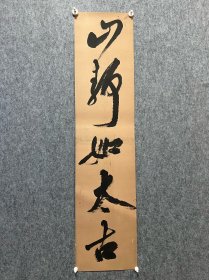 山靜如太古